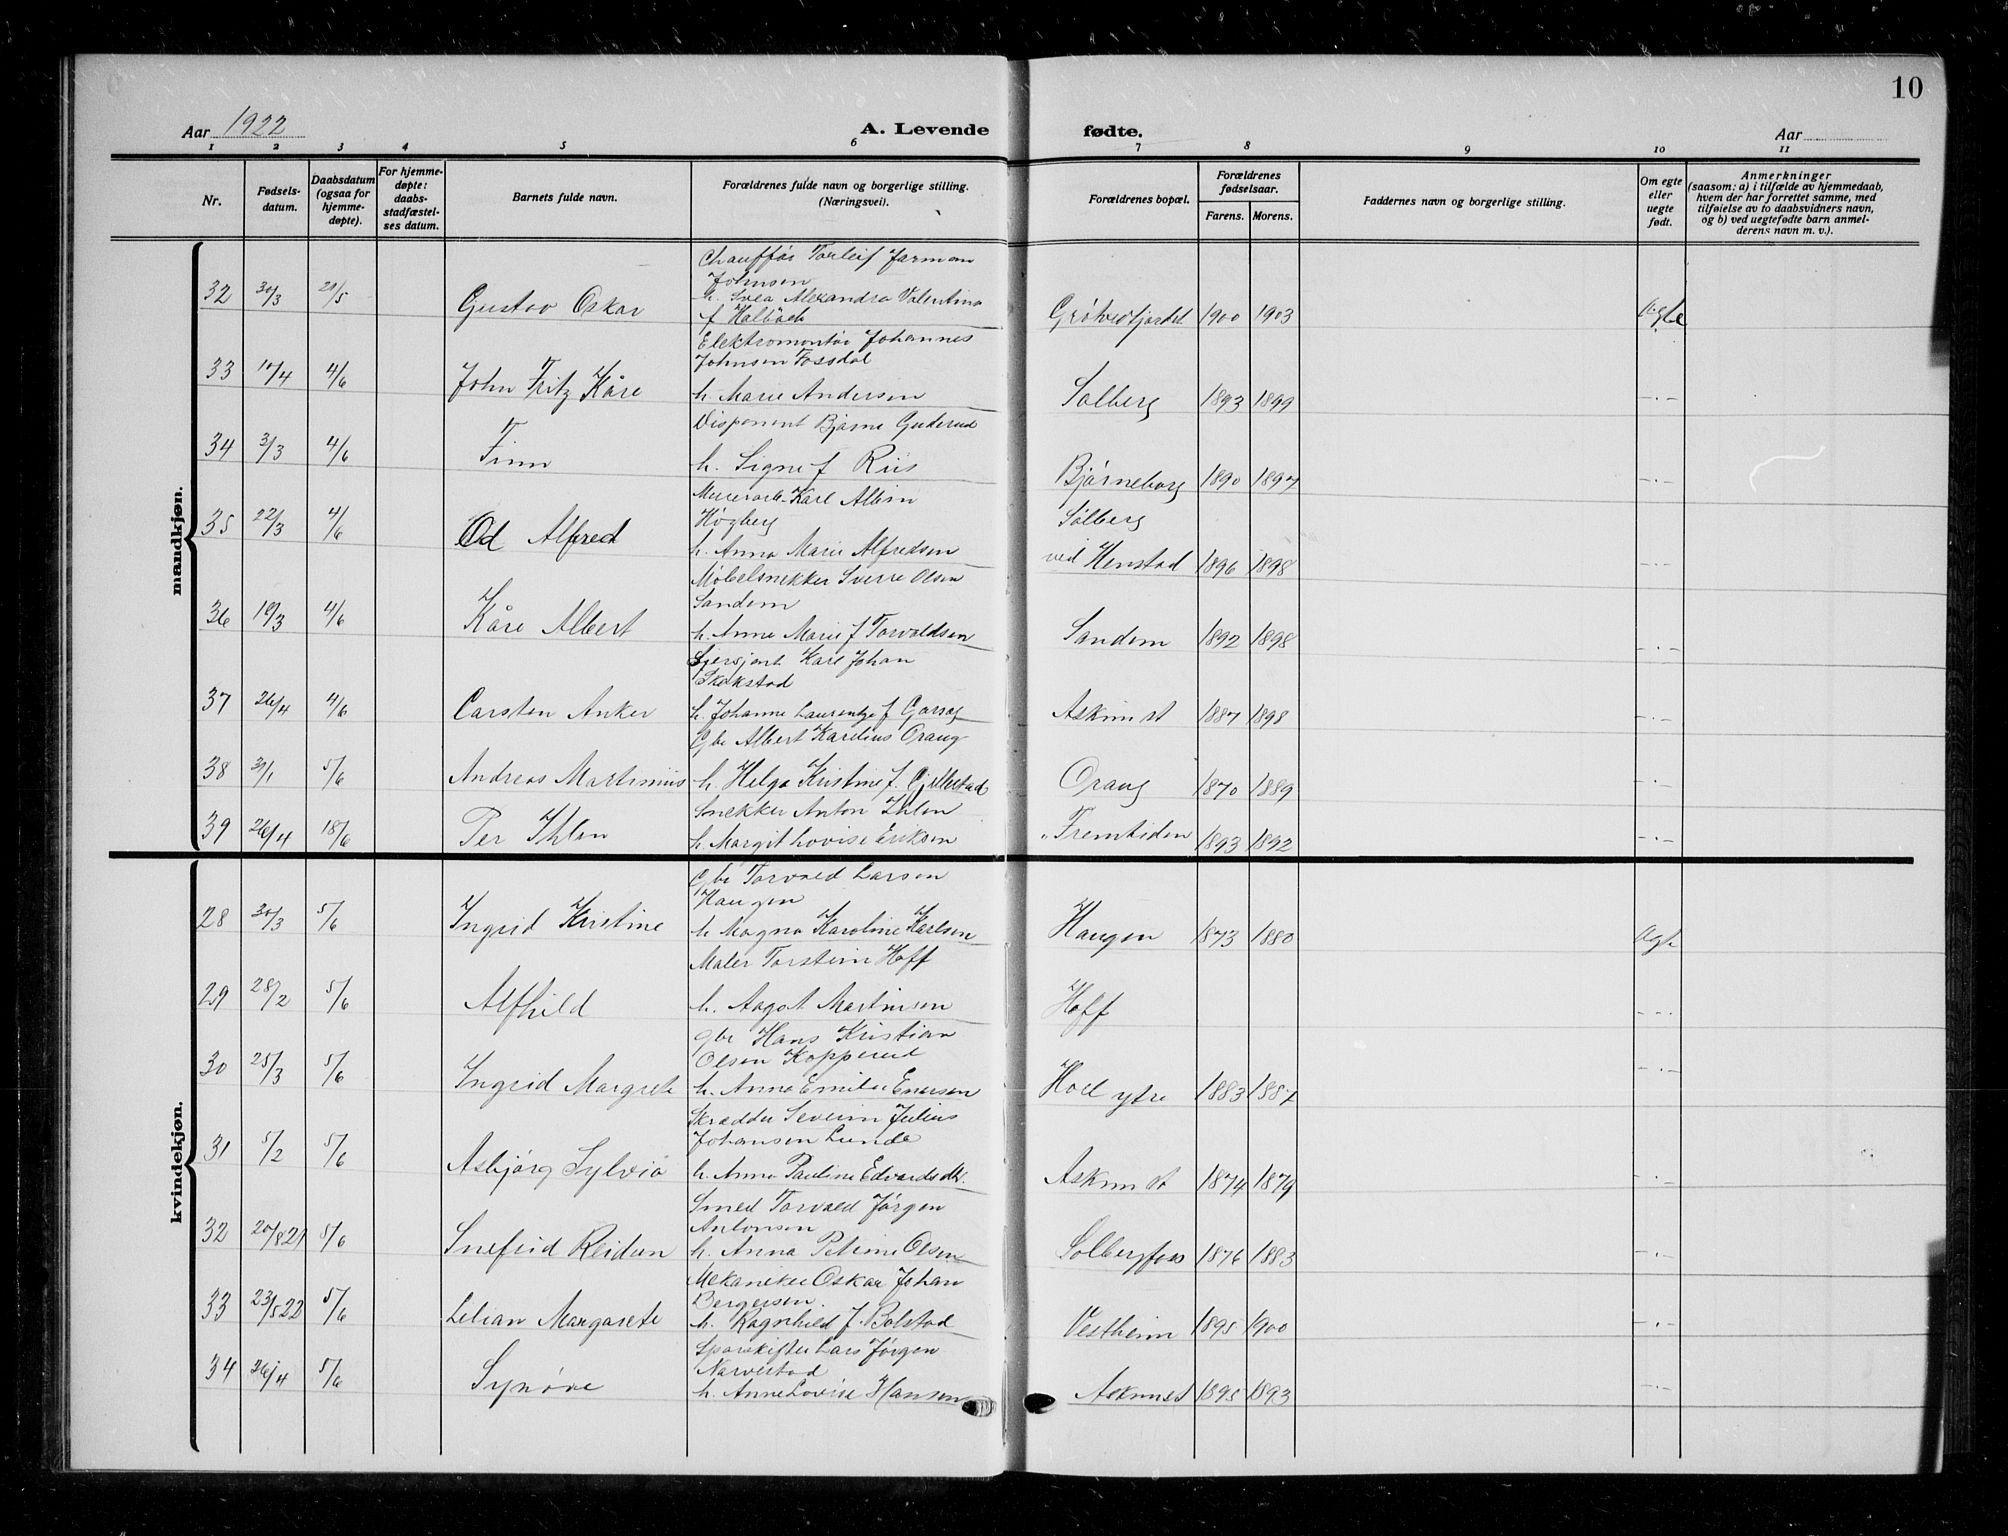 10
Aar 1922 A. Levende fødte. Aar
1 2 3 4 5 6 7 8 9 10 11
Nr.
Fødsels-
datum.
Daabsdatum
(ogsaa for
hjemme-
døpte).
For hjemme-
døpte:
daabs-
stadfæstel-
ses datum.
Barnets fulde navn.
Forældrenes fulde navn og borgerlige stilling.
(Næringsvei).
Forældrenes bopæl.
Forældrenes
fødselsaar.
Farens. Morens.
Faddernes navn og borgerlige stilling.
Om egte
eller
uegte
født.
Anmerkninger
(saasom: a) i tilfælde av hjemmedaab,
hvem der har forrettet samme, med
tilføielse av to daabsvidners navn,
og b) ved uegtefødte barn anmel-
derens navn m. v.).
mandkjøn.
Chauffør Torleif Jarman
Johnsen
32 30/3 21/5 Gustav Oskar h. Svea Alexandra Valentina
f Halbäck Grøtvedtjordet 1900 1903 Ægte
Elektromontør Johannes
Johnsen Fossdal
33 10/4 4/6 John Fritz Kåre h. Marie Andersen Solberg 1893 1899 -.-
Disponent Bjarne Guderud
34 3/3 4/6 Finn h. Signe f Riis Bjørneborg 1890 1897 -.-
Murerarb. Karl Albin
Högberg Solberg
35 22/3 4/6 Od Alfred h. Anna Marie Alfredsen ved Henstad 1896 1898 -.-
Møbelsnekker Sverre Olsen
Sandem
36 19/3 4/6 Kåre Albert h. Anna Marie f Torvaldsen Sandem 1892 1898 -.-
Sersjant Karl Johan
Skakstad
37 26/4 4/6 Carsten Anker h. Johanne Laurentze f Garseg Askim st 1887 1898 -.-
Gbr Albert Karelius Oraug
38 31/1 5/6 Andreas Martinius h. Helga Kristine f. Gillestad Oraug 1870 1889 -.-
Snekker Anton Ihlen
39 26/4 18/6 Per Ihlen h. Margit Lovise Eriksen "Fremtiden 1893 1892 -.-
kvindekjøn.
Gbr Torvald Larsen
Haugen
28 30/3 5/6 Ingrid Kristine h. Magna Karoline Karlsen Haugen 1873 1880 Ægte
Maler Torstein Hoff
29 28/2 5/6 Alfhild h. Aagot Martinsen Hoff -.-
gbr Hans Kristian
Olsen Kopperud
30 25/3 5/6 Ingrid Margrete h. Anna Emilie Enersen Hoel ytre 1883 1887 -.-
Skrædder Severin Julius
Johansen Lunde
31 5/2 5/6 Asbjørg Sylvia h. Anna Pauline Edvardsdtr. Askim st 1874 1879 -.-
Smed Torvald Jørgen
Antonsen
32 20/8 21 5/6 Snefrid Reidun h. Anna Petrine Olsen Solbergfoss 1876 1883 -.-
Mekaniker Oskar Johan
Bergersen
33 23/5 22 5/6 Lilian Margarete h. Ragnhild f. Bolstad Vestheim 1895 1900 -.-
Sporskifter Lars Jørgen
Narvestad
34 26/4 5/6 Synøve h. Anne Lovise Hansen Askim st 1895 1893 -.-